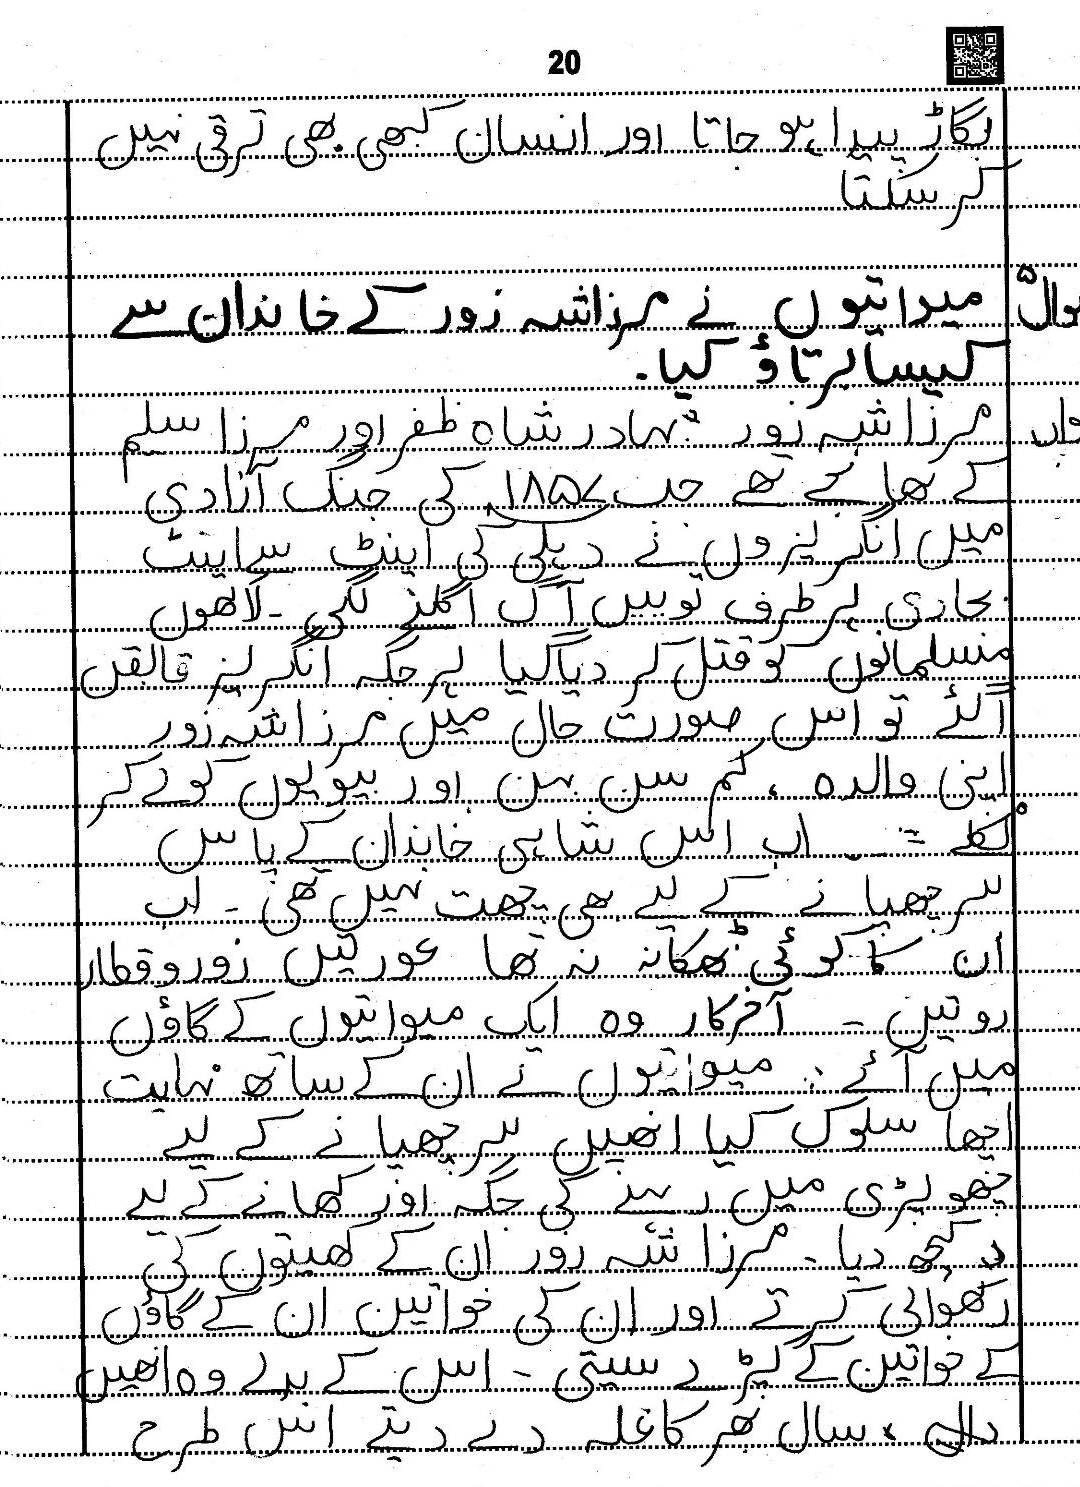 20
بگاڑ پیدا ہو جاتا اور انسان کبھی بھی ترقی نہیں
کر سکتا
سوال۵ میواتیوں نے مرزا شہ زور کے خاندان سے
کیسا برتاؤ کیا۔
مرزا شہ زور بہادر شاہ ظفر اور مرزا سلیم
کے بھانجے تھے جب ۱۸۵۷ کی جنگ آزادی
میں انگریزوں نے دہلی کی اینٹ سے اینٹ
بجا دی ہر طرف توپیں آگ اگلنے لگی ۔ لاکھوں
مسلمانوں کو قتل کر دیا گیا ہر جگہ انگریز قابض
آگئے تو اس صورت حال میں مرزا شہ زور
اپنی والدہ ، کم سن بہن اور بیویوں کو لے کر
نکلے ۔ اب اس شاہی خاندان کے پاس
سر چھپانے کے لیے بھی چھت نہیں تھی ۔ اب
ان کا کوئی ٹھکانہ نہ تھا عورتیں زور و قطار
روتیں ۔ آخر کار وہ ایک میواتیوں کے گاؤں
میں آئے ۔ میواتیوں نے ان کے ساتھ نہایت
اچھا سلوک کیا انھیں سر چھپانے کے لیے
جھوپڑی میں رہنے کی جگہ اور کھانے کے لیے
کچھ دیا ۔ مرزا شہ زور ان کے کھیتوں کی
رکھوالی کرتے اور ان کی خواتین ان کے گاؤں
کے خواتین کے کپڑے سیتی ۔ اس کے بدلے وہ انھیں
دال ، سال بھر کا غلہ دے دیتے اس طرح